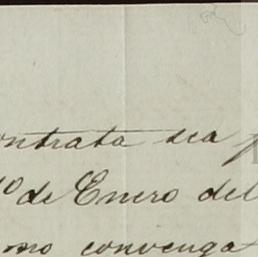 ontrata sea
1º de Enero del
mo convenga